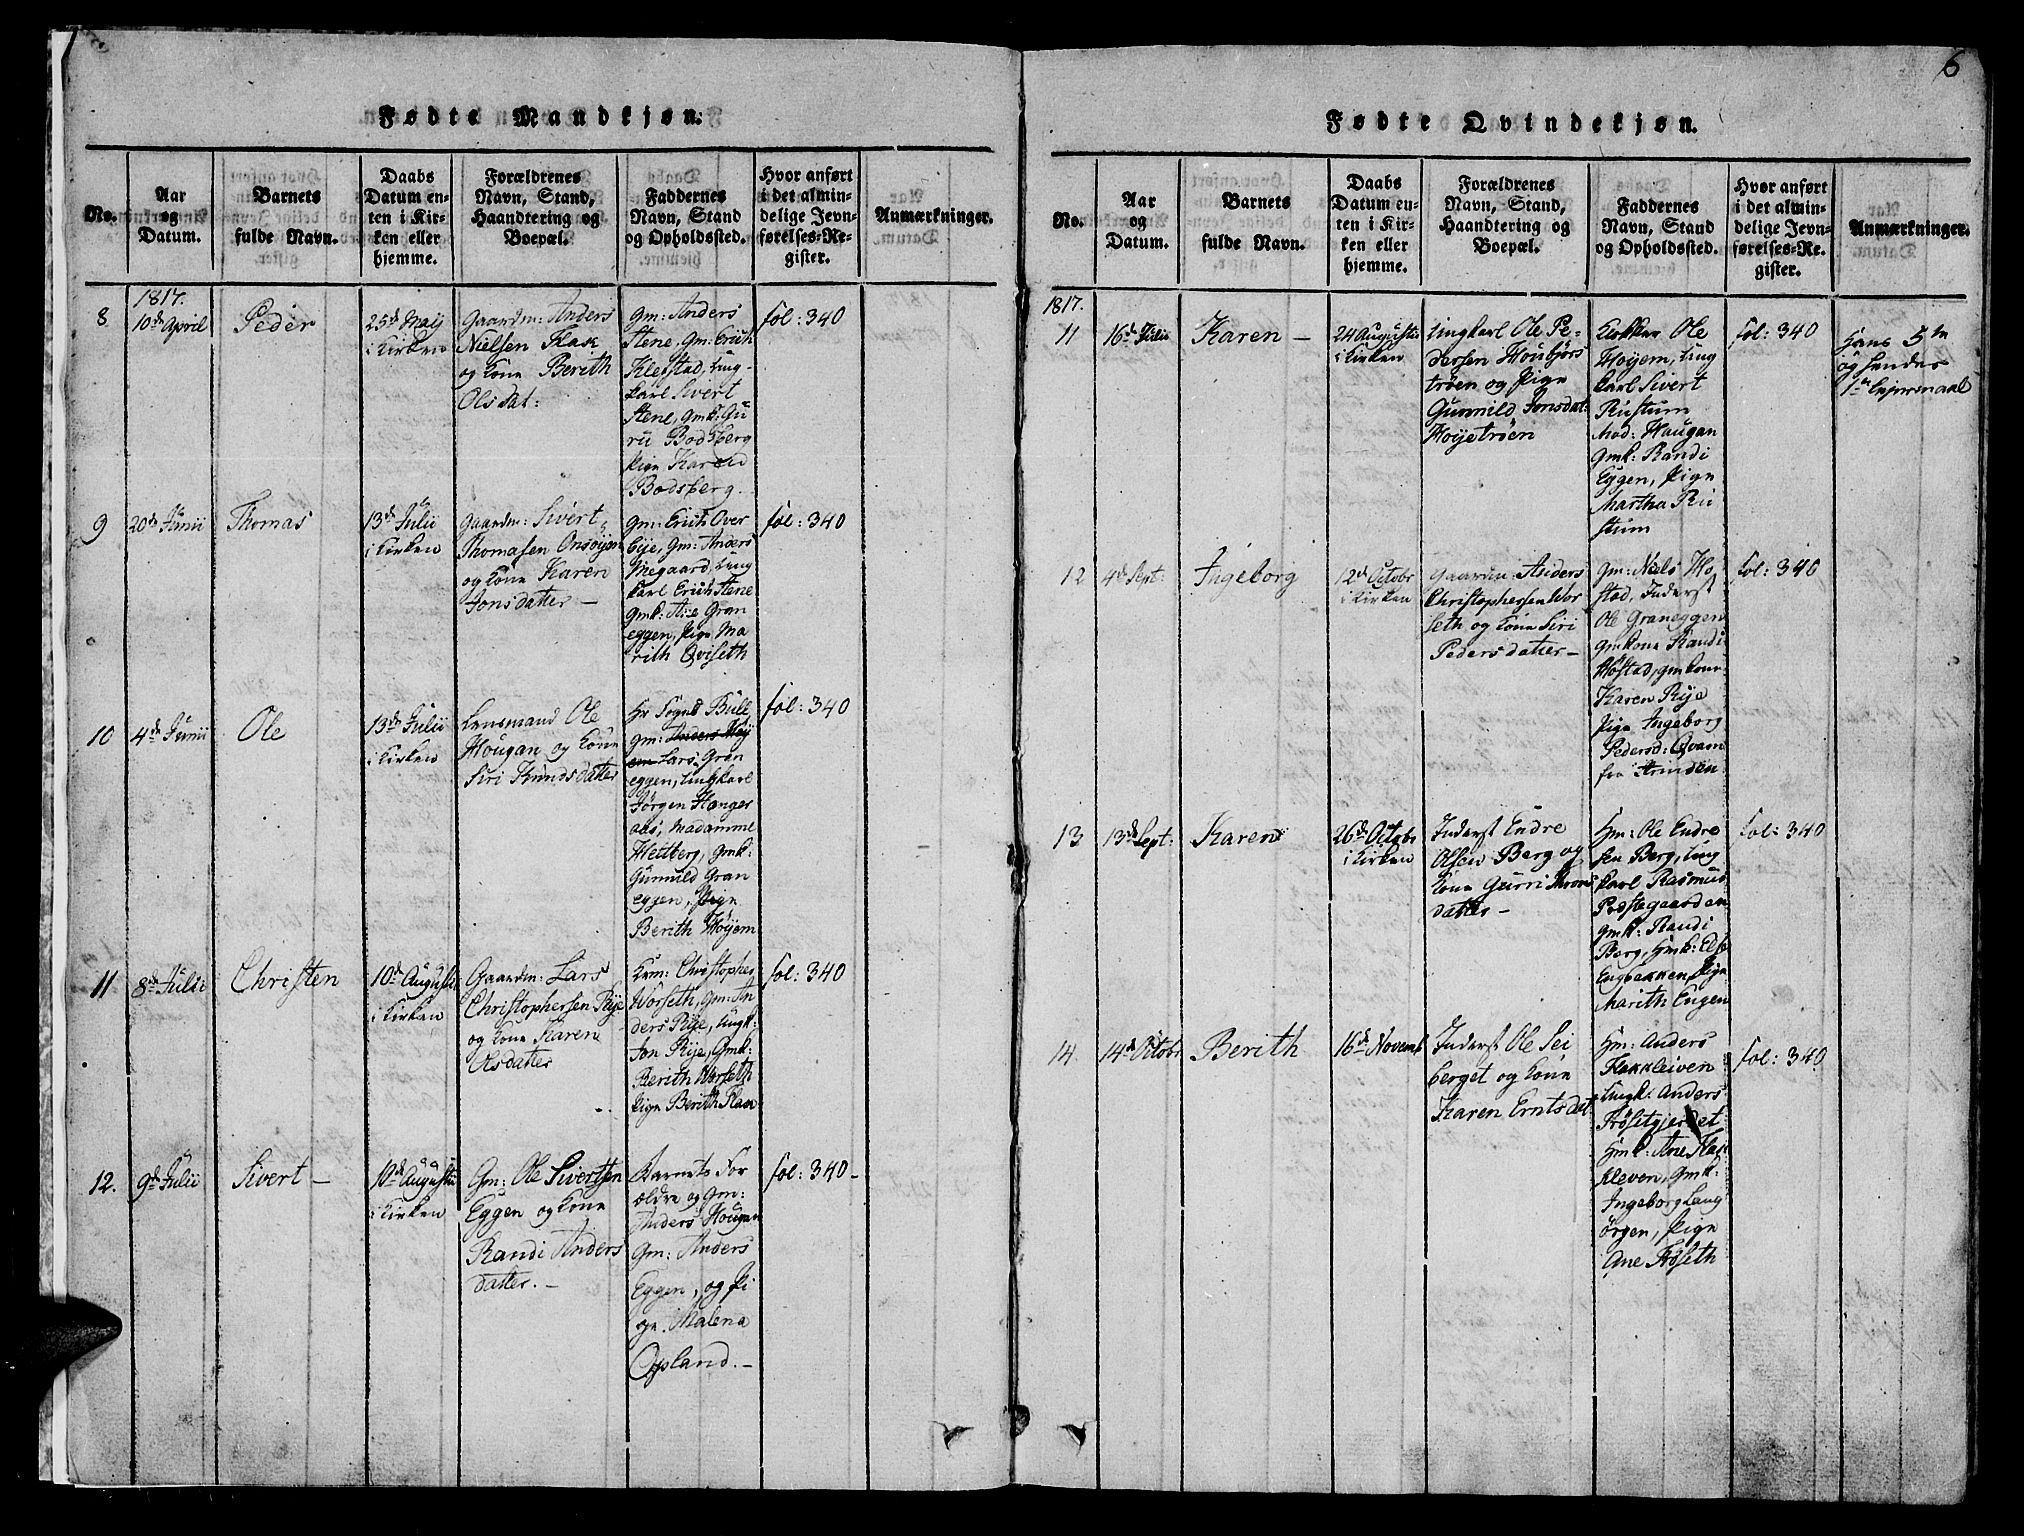 6
Fødte Mandkjøn.
No.
Aar
og
Datum.
Barnets
fulde Navn.
Daabs
Datum en-
ten i Kir-
ken eller
hjemme.
Forældrenes
Navn, Stand,
Haandtering og
Boepæl.
Faddernes
Navn, Stand
og Opholdssted.
Hvor anført
i det almin-
delige Jevn-
førelses-Re-
gister.
Anmærkninger.
1817.
8
10de April
Peder
25de Maij
i Kirken
Gaardm: Anders
Nielsen Flak
og Kone Berith
Olsdat:
Gm: Anders
Stene, Gm: Erich
Klefstad, Ung-
karl Sivert
Stene, Gmk: Gu
ru Bodsberg
Pige Karen
Bodsberg.
fol: 340
9
20de Junii
Thomas
13de Julii
i Kirken
Gaardm: Sivert
Thomasen Onsøijen
og Kone Karen
Jonsdatter —
Gm: Erich Over
Eije, Gm: Anders
Megaard, Ung
karl Erich Stene
Gmk: Ane Gran
eggen, Pige Ma
rith Qviseth
fol: 340
10
4de Junii
Ole
13de Julii
i Kirken
Lensmand Ole
Hougan og Kone
Siri Knudsdatter
Hr Sogne Bull
Gm: Anders Høij
em Lars Gran
eggen, Ungkarl
Jørgen Hanger
aas, Madamme
Hetberg, Gmk:
Gunnild Gran
eggen, Pige
Berith Høijem
fol: 340
11
8de Julii
Christen
10de Augusti
i Kirken
Gaardm: Lars
Christophersen Rije
og Kone Karen
Olsdatter
Krm: Christopher
Worseth, Gm: An
ders Rije, Ungk:
Jon Rije, Gmk:
Berith Worseth
Pige Berith Flak
fol: 340
12.
9de Julii
Sivert —
10de Augusti
i Kirken
Gm: Ole Sivertsen
Eggen og Kone
Randi Anders
datter. —
Barnets For
ældre og Gm:
Anders Hougan
Gm: Anders
Eggen, og Pi
ge Malena
Opland. —
fol: 340 —
Fødte Qvindekjøn.
No.
Aar
og
Datum.
Barnets
fulde Navn.
Daabs
Datum en-
ten i Kir-
ken eller
hjemme.
Forældrenes
Navn, Stand,
Haandtering og
Boepæl.
Faddernes
Navn, Stand
og Opholdssted.
Hvor anført
i det almin-
delige Jevn-
førelses-Re-
gister.
Anmærkninger.
1817.
11
16de Julii
Karen —
24 Augusti
i Kirken
Ungkarl Ole Pe-
dersen Houbjørs
trøen og Pige
Gunnild Jonsdat:
Hoijetrøen
Klokker Ole
Hoyem, Ung
karl Sivert
Rustum
Mad: Haugan
Gmk: Randi
Eggen, Pige
Martha Ru
stum
fol: 340
Hans 5te
og hendes
1te Leiersmaal
12
4de Sept:
Ingeborg
12de Octobr
i Kirken
Gaardm: Anders
Christophersen Wor
seth og Kone Siri
Pedersdatter —
Gm: Niels Ho
stad, Inderst
Ole Graneggen
Gmkone Randi
Høstad, Gmkone
Karen Rije
Pige Ingeborg
Pedersd: Qvam
fra Strinden
fol: 340
13
13de Sept:
Karen
26de Octobr
i Kirken
Inderst Endre
Olsen Berg og
Kone Gurri Throns
datter —
Hm: Ole Endre
sen Berg, Ung
karl Rasmus
Præstegaarden
Gmk: Randi
Berg, Hmk: Else
Engbakken, Pige
Marith Engen
fol: 340
14.
14de Octobr
Berith
16de Novemb
Inderst Ole Sei
berget og Kone
Karen Erntsdat
Hm: Anders
Flakkleiven
Ungk: Anders
Frøsetgjerdet
Hmk: Ane Flak
kleven, Gmk:
Ingeborg Lang
ørgen, Pige
Ane Frøseth
fol: 340